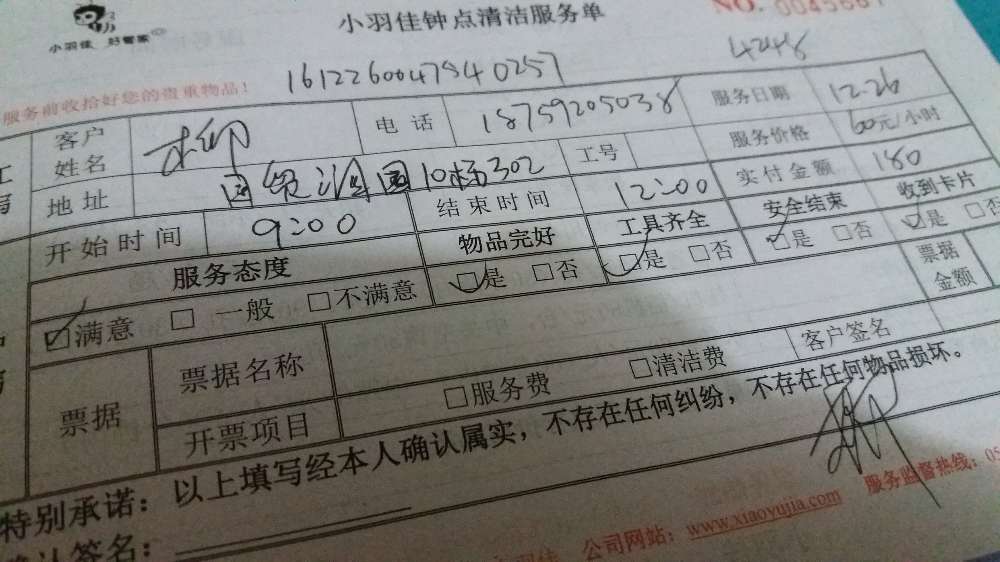 小羽佳 好管家
小羽佳钟点清洁服务单
NO. 0045661
服务前收拾好您的贵重物品！
1612260047540257
4248
客户姓名
电话 18759205038
服务日期 12.26
地址 国贸 10栋302
工号
服务价格 60元/小时
开始时间 9:00
结束时间 12:00
实付金额 180
服务态度
物品完好
工具齐全
安全结束
收到卡片
☑满意 □一般 □不满意
☑是 □否
☑是 □否
☑是 □否
☑是 □否
票据
票据名称
票据金额
开票项目
□服务费 □清洁费
客户签名
特别承诺：以上填写经本人确认属实，不存在任何纠纷，不存在任何物品损坏。
确认签名：
公司网站：www.xiaoyujia.com
服务监督热线：05